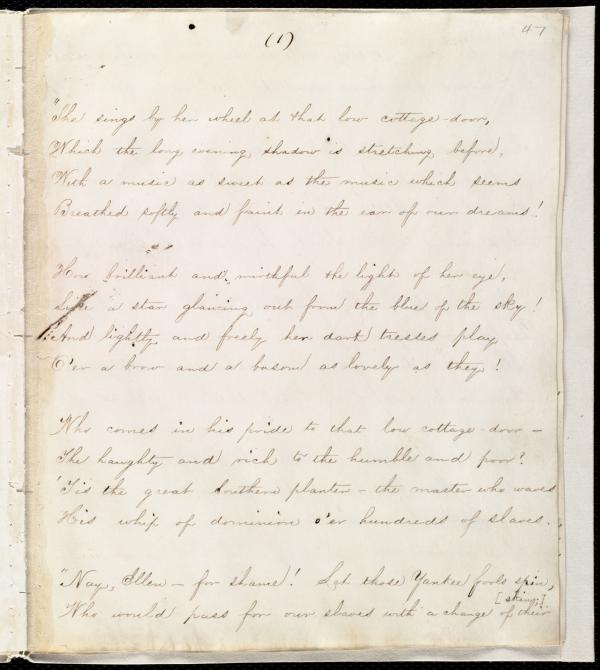 (1)
47
"She sings by her wheel at that low cottage-door,
Which the long evening shadow is stretching before,
With a music as sweet as the music which seems
Breathed softly and faint in the ear of our dreams!
How brilliant and mirthful the light of her eye,
Like a star glancing out form the blue of the sky!
And lightly and freely her dark tresses play
O'er a brow and a bosom as lovely as they!
Who comes in his pride to that low cottage-door –
The haughty and rich to the humble and poor?
'Tis the great Southern planter – the master who waves
His whip of dominion o'er hundreds of slaves.
"Nay, Ellen – for shame! Let those Yankee fools spin,
Who would pass for our slaves with a change of their
[skin;]